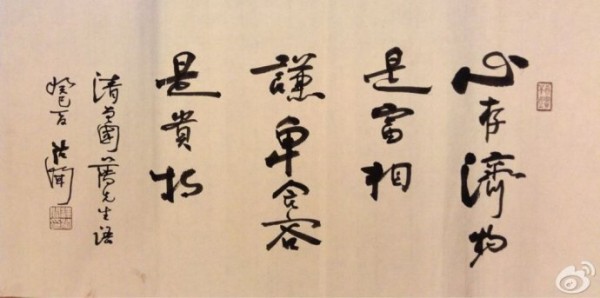 心存濟物
是富相
謙卑含容
是貴相
清曾國藩先生語
癸巳夏